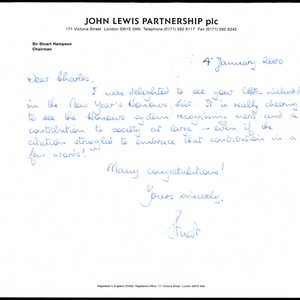 JOHN LEWIS PARTNERSHIP plc
171 Victoria Street London SW1E 5NN Telephone (0171) 592 6117 Fax (0171) 592 6342
Sir Stuart Hampson
Chairman
4 January 2000
Dear Charles,
I was delighted to see your CBE included
in the New Year's Honours List. It is really cheering
to see the Honours system recognising merit and a
contribution to society at large – even if the
citation struggled to embrace that contribution in a
few words!
Many congratulations!
Yours sincerely,
Stuart.